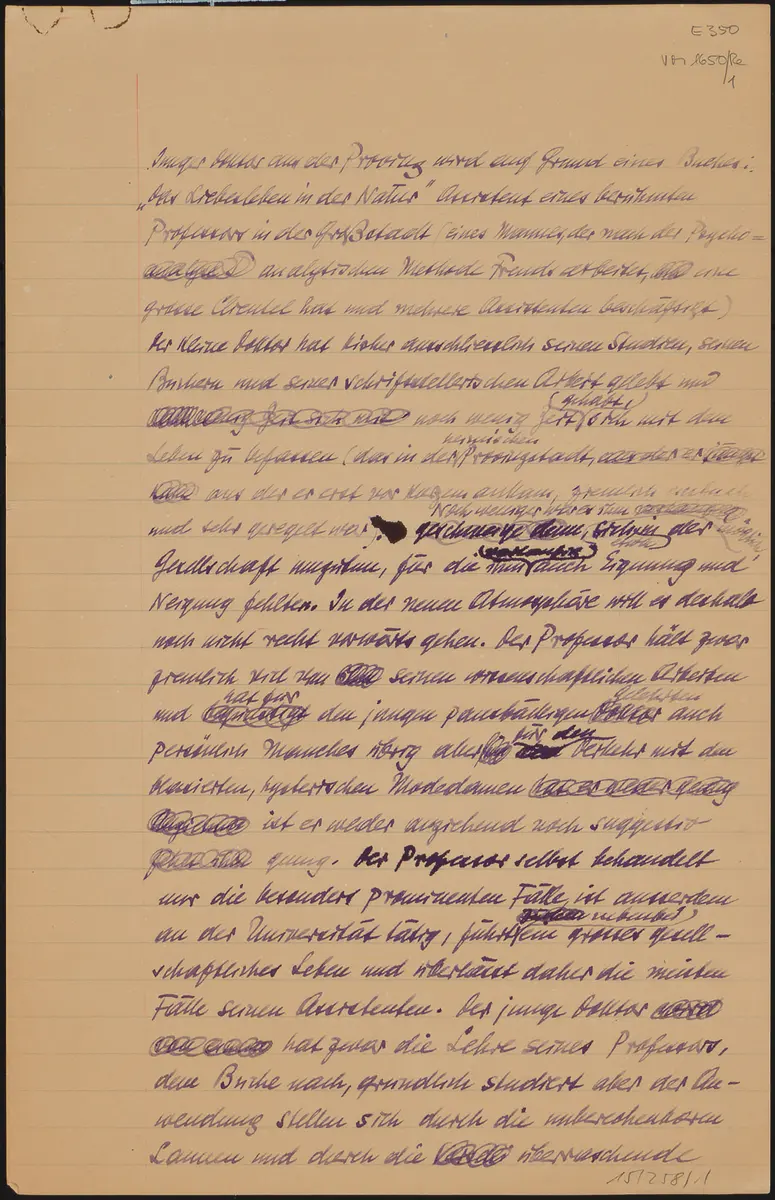 E 350
VM 1650/Re
1
Junger Doktor aus der Provinz wird auf Grund eines Buches:
„Das Liebesleben in der Natur" Assistent eines berühmten
Professors in der Großstadt (eines Mannes, der nach der Psycho=
analytischen Methode Freuds arbeitet, eine
grosse Clientel hat und mehrere Assistenten beschäftigt)
Der kleine Doktor hat bisher ausschliesslich seinen Studien, seinen
Büchern und seiner schriftstellerischen Arbeit gelebt und
(gehabt,)
noch wenig Zeit sich mit dem
heimischen
Leben zu befassen (das in der Provinzstadt,
aus der er erst vor kurzem ankam, ziemlich
Noch weniger war es ihm
und sehr geregelt war) geschweige denn, sich in der
Gesellschaft umzutun, für die ihm auch Eignung und
Neigung fehlten. In der neuen Atmosphäre will es deshalb
noch nicht recht vorwärts gehen. Der Professor hält zwar
ziemlich viel von seinen wissenschaftlichen Arbeiten
hat für gelehrten
und den jungen pausbäckigen Doktor auch
für den
persönlich Manches übrig aber Verkehr mit den
blasierten, hysterischen Modedamen
ist er weder anziehend noch suggestiv
genug. Der Professor selbst behandelt
nur die besonders prominenten Fälle, ist ausserdem
nebenbei
an der Universität tätig, führt ein grosses gesell-
schaftliches Leben und überlässt daher die meisten
Fälle seinen Assistenten. Der junge Doktor
hat zwar die Lehre seines Professors,
dem Buche nach, gründlich studiert aber der An-
wendung stellen sich durch die unberechenbaren
Launen und durch die überraschende
15/258/1